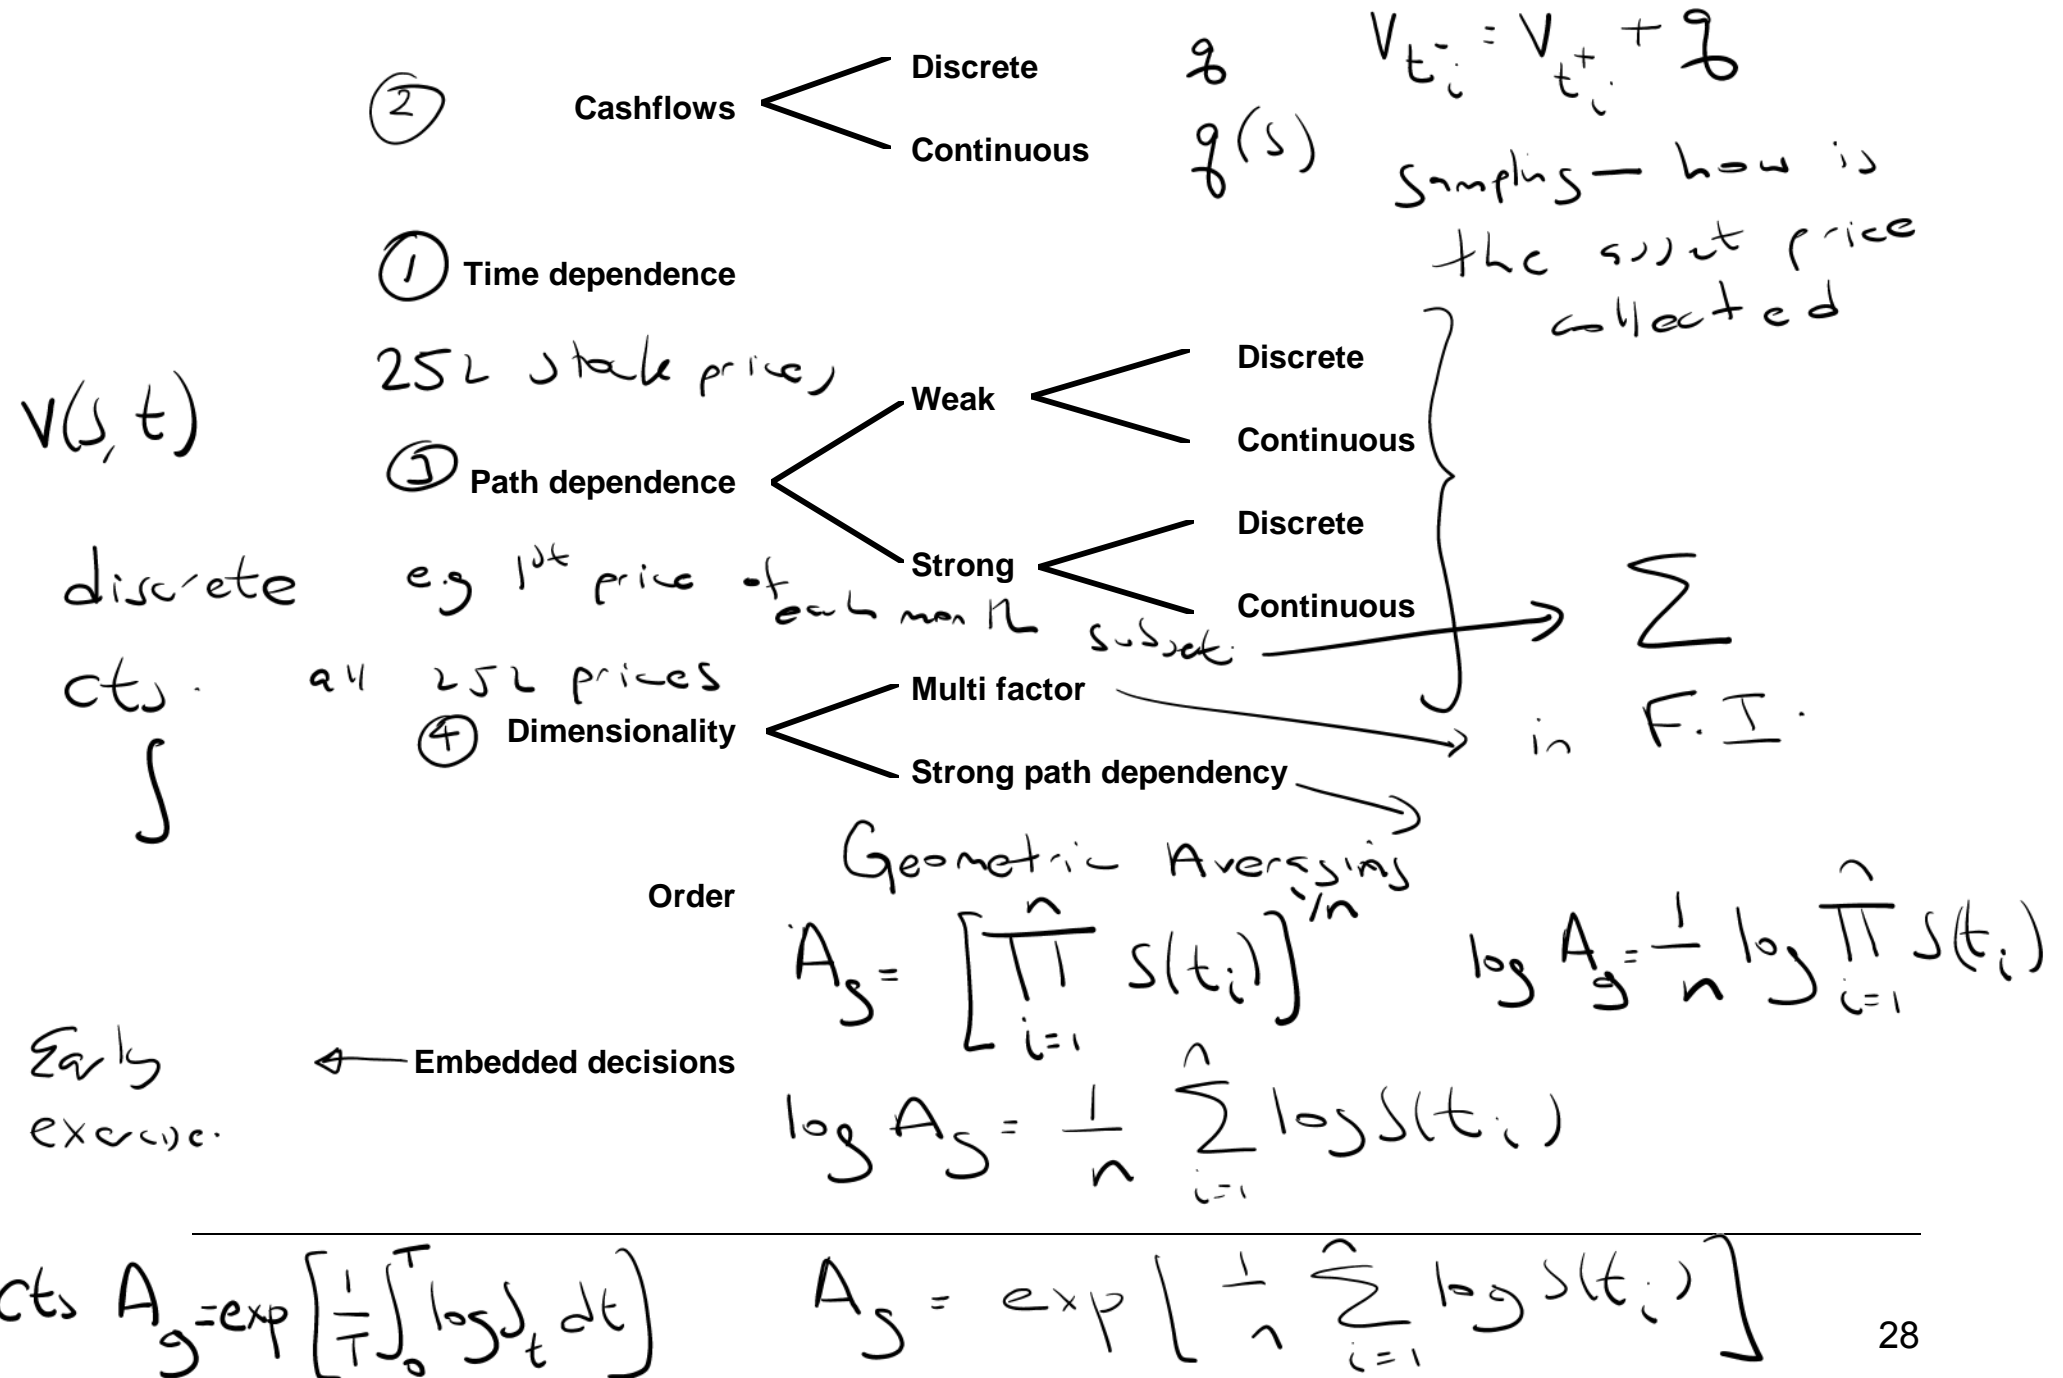 ② Cashflows
Discrete q
Continuous q(s)
V_{t_i^-} = V_{t_i^+} + q
Sampling — how is
the asset price
collected
① Time dependence
252 stock prices
V(S, t)
③ Path dependence
Weak
Discrete
Continuous
Strong
Discrete
Continuous
discrete e.g 1st price of each month subset → ∑
cts. all 252 prices
∫
④ Dimensionality
Multi factor → in F.I.
Strong path dependency →
Geometric Averaging
Order
A_g = [∏_{i=1}^{n} S(t_i)]^{1/n}
log A_g = 1/n log ∏_{i=1}^{n} S(t_i)
Early exercise. ← Embedded decisions
log A_g = 1/n ∑_{i=1}^{n} log S(t_i)
cts A_g = exp[1/T ∫_0^T log S_t dt]
A_g = exp[1/n ∑_{i=1}^{n} log S(t_i)]
28